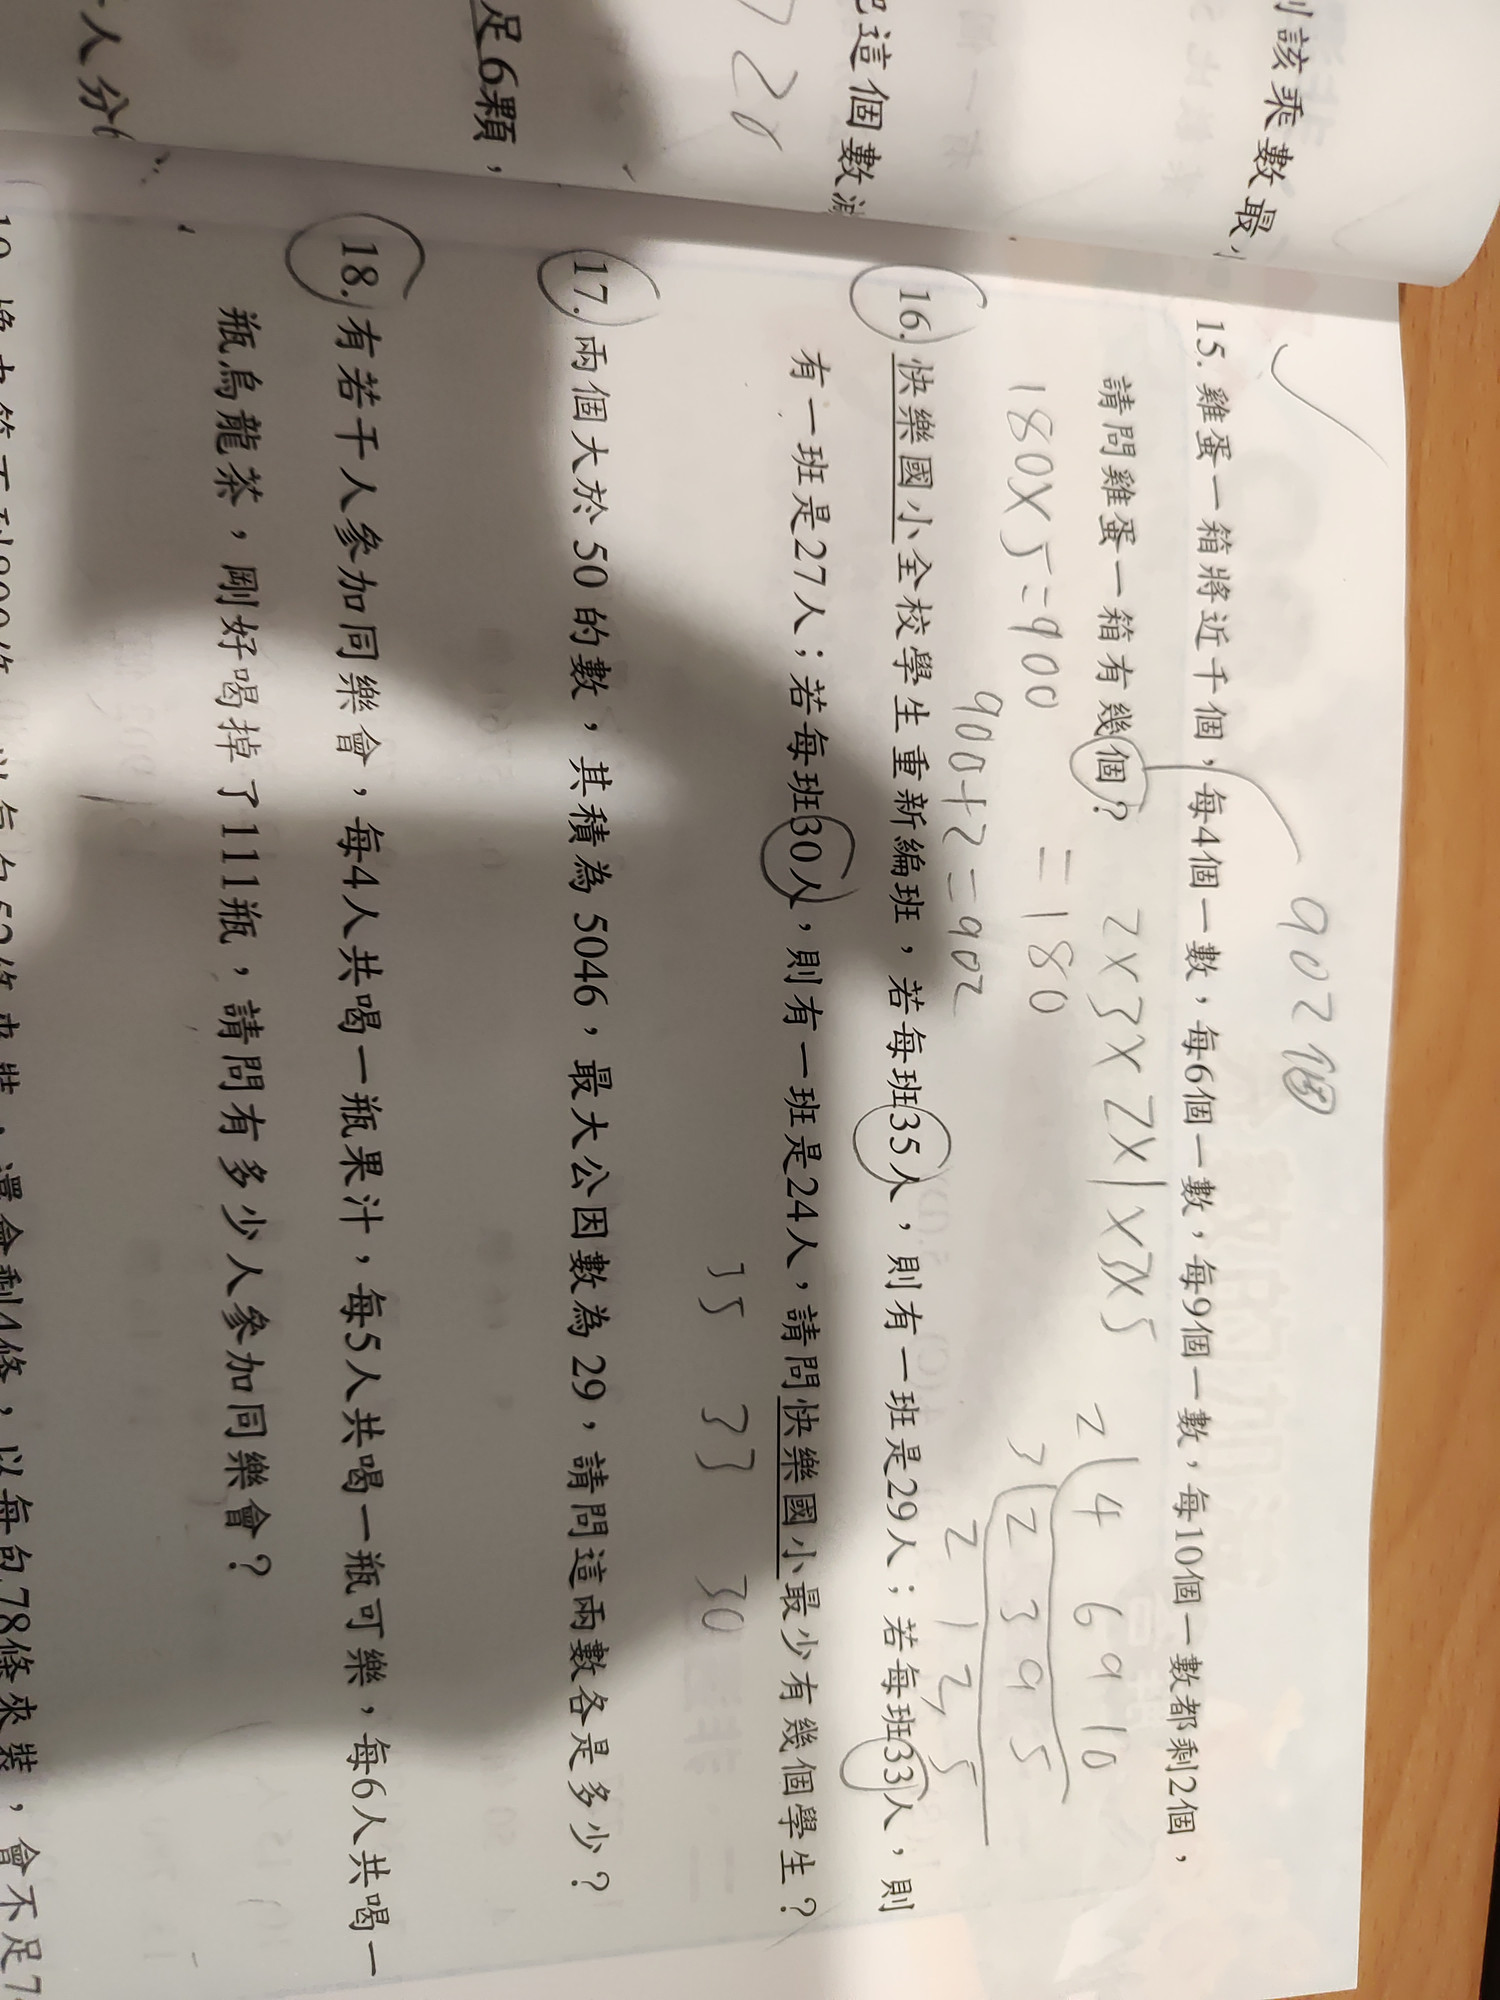 則該乘數最
把這個數減
20
足6顆，
人分
15. 雞蛋一箱將近千個，每4個一數，每6個一數，每9個一數，每10個一數都剩2個，
請問雞蛋一箱有幾個？
902個
2×3×2×1×3×5
=180
180×5=900
900+2=902
2 4 6 9 10
3 2 3 9 5
2 1 3 5
16. 快樂國小全校學生重新編班，若每班35人，則有一班是29人；若每班33人，則
有一班是27人；若每班30人，則有一班是24人，請問快樂國小最少有幾個學生？
35 33 30
17. 兩個大於50的數，其積為5046，最大公因數為29，請問這兩數各是多少？
18. 有若干人參加同樂會，每4人共喝一瓶果汁，每5人共喝一瓶可樂，每6人共喝一
瓶烏龍茶，剛好喝掉了111瓶，請問有多少人參加同樂會？
以每包52條來裝，還會剩4條，以每包78條來裝，會不足